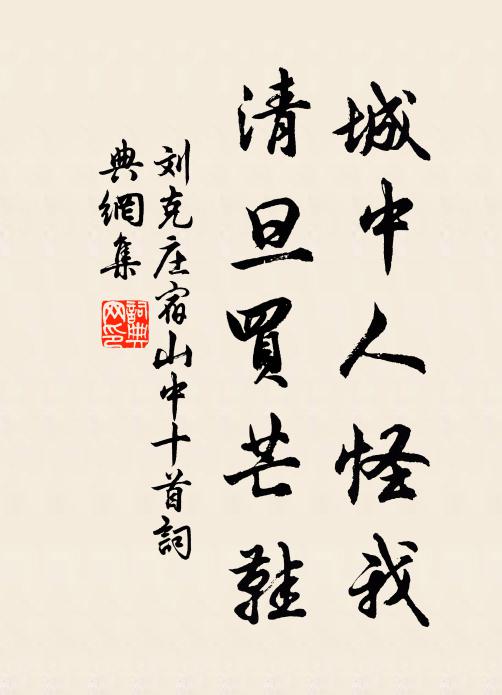 城中人怪我
清旦買芒鞋
刘克庄宿山中十首詞
典網集
詞典
网印